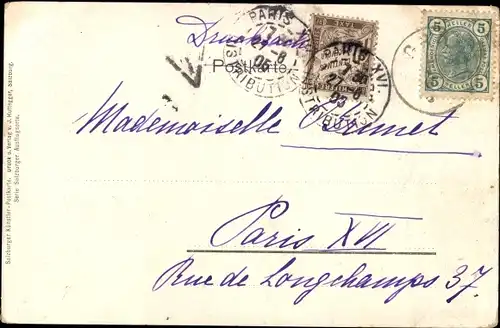 Drucksache
Postkarte.
PARIS XVI.
DISTRIBUTION
5 HELLER 5
Mademoiselle
Paris XVI
Rue de Longchamps 37.
Salzburger Künstler-Postkarte. Druck u. Verlag v. J. Huttegger, Salzburg.
Serie Salzburger Ausflugsorte.